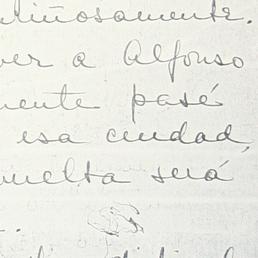 riñosamente.
ver a Alfonso
mente pasé
esa ciudad,
vuelta será